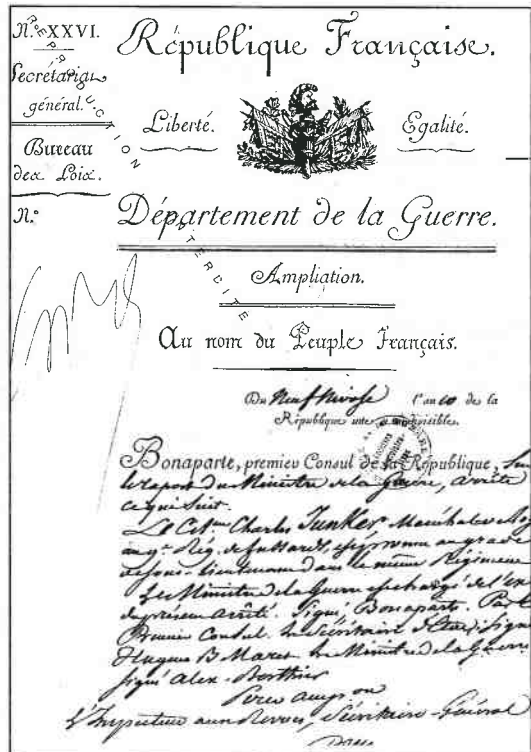 N.º XXVI.
Secrétariat
général.
Bureau
des Loix.
N.º
République Française.
Liberté. Egalité.
Département de la Guerre.
Ampliation.
Au nom du Peuple Français.
REPRODUCTION INTERDITE
Du Neuf Nivose l'an 10 de la
République une et indivisible.
Bonaparte, premier Consul de la République, Sur
le rapport du Ministre de la Guerre, arrête
ce qui Suit.
Le Cit.en Charles Junker Maréchal
au 9.e Rég. de hussards, est nommé au grade
de sous-lieutenant dans le même Régiment
Le Ministre de la Guerre est chargé de l'
du présent arrêté. Signé Bonaparte. Par le
Premier Consul. le Secrétaire d'Etat, Signé
Hugues B. Maret. le Ministre de la Guerre
signé Alex. Berthier
L'Inspecteur aux Revues, Secrétaire Général